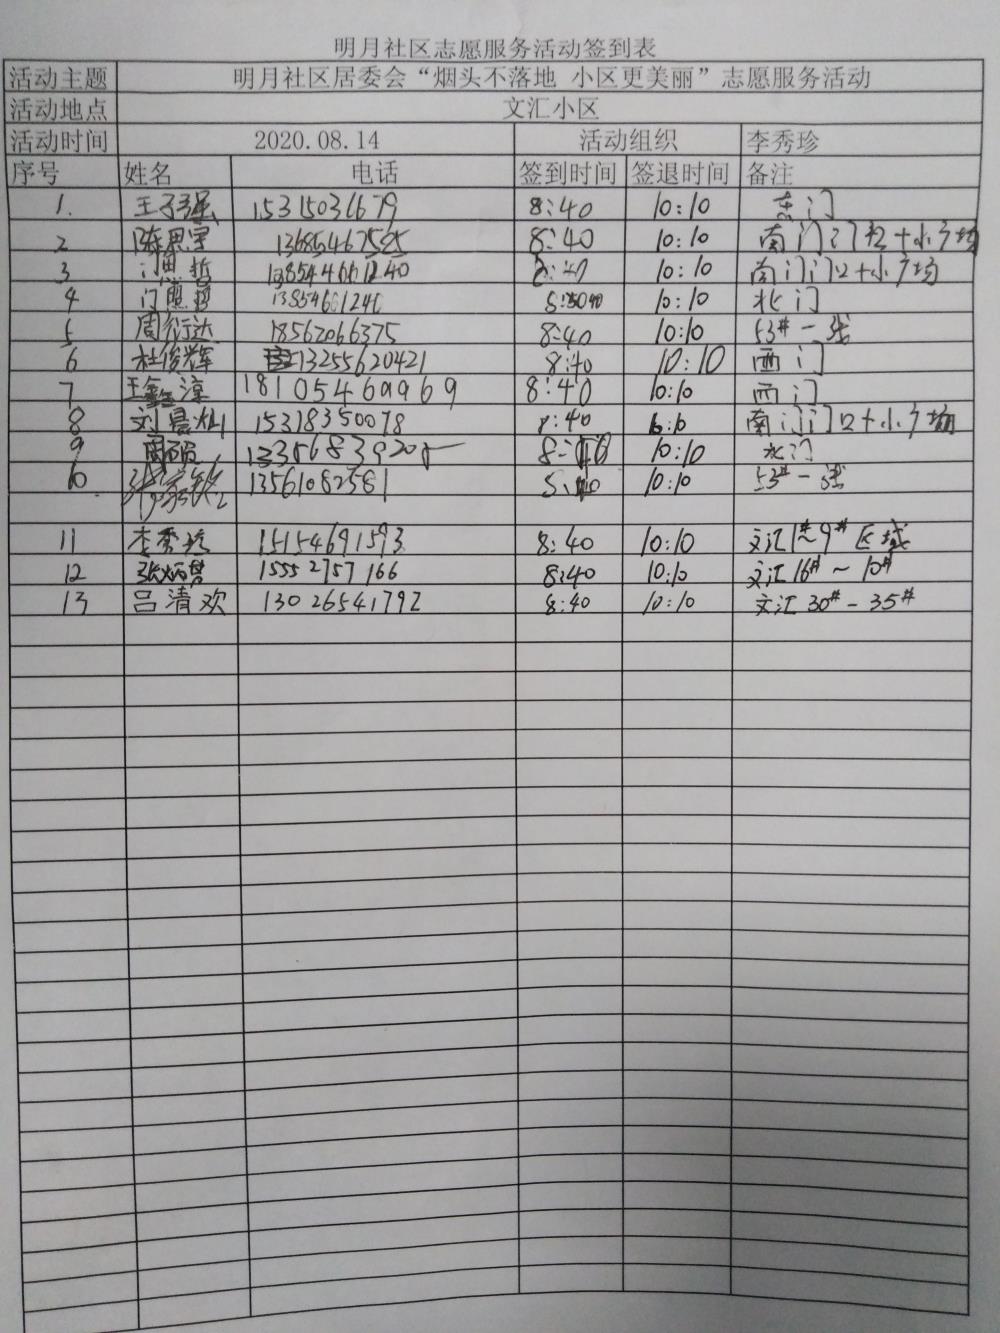 明月社区志愿服务活动签到表
活动主题 明月社区居委会“烟头不落地 小区更美丽”志愿服务活动
活动地点 文汇小区
活动时间 2020.08.14 活动组织 李秀珍
序号 姓名 电话 签到时间 签退时间 备注
1. 王子强 15315031679 8:40 10:10 东门
2 陈思宇 13685467525 8:40 10:10 南门门口+小广场
3 门照哲 8:40 10:10 南门门口+小广场
4 门照哲 10:10 北门
5 周衍达 18562066375 8:40 10:10 53#一张
6 杜俊辉 13255620421 8:40 10:10 西门
7 王鑫淳 18105469969 8:40 10:10 西门
8 刘晨灿 15318350078 8:40 南门门口+小广场
9 周硕 13356839205 10:10 北门
10 13561082581 10:10 53#一张
11 李秀珍 15154691593 8:40 10:10 文汇1#~9#区域
12 15552757166 8:40 10:10 文汇16#~10#
13 吕清欢 13026541792 8:40 10:10 文汇30#-35#